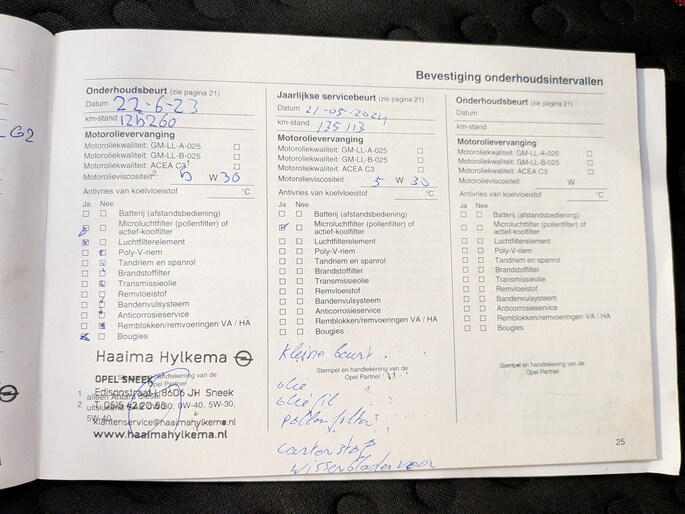 G2
Bevestiging onderhoudsintervallen
Onderhoudsbeurt (zie pagina 21)
Datum 22-6-23
km-stand 126260
Motorolievervanging
Motoroliekwaliteit: GM-LL-A-025
Motoroliekwaliteit: GM-LL-B-025
Motoroliekwaliteit: ACEA C3¹
Motorolieviscositeit² 5 W 30
Antivries van koelvloeistof °C
Ja Nee
Batterij (afstandsbediening)
Microluchtfilter (pollenfilter) of
actief-koolfilter
Luchtfilterelement
Poly-V-riem
Tandriem en spanrol
Brandstoffilter
Transmissieolie
Remvloeistof
Bandenvulsysteem
Anticorrosieservice
Remblokken/remvoeringen VA / HA
Bougies
Haaima Hylkema
OPEL SNEEK
Edisonstraat 1, 8606 JH Sneek
T 0515 42 20 58
klantenservice@haaimahylkema.nl
www.haaimahylkema.nl
handtekening van de
Opel Partner
1 alleen
2 0W-40, 5W-30,
5W-40
Jaarlijkse servicebeurt (zie pagina 21)
Datum 21-05-2024
km-stand 135113
Motorolievervanging
Motoroliekwaliteit: GM-LL-A-025
Motoroliekwaliteit: GM-LL-B-025
Motoroliekwaliteit: ACEA C3
Motorolieviscositeit 5 W 30
Antivries van koelvloeistof °C
Ja Nee
Batterij (afstandsbediening)
Microluchtfilter (pollenfilter) of
actief-koolfilter
Luchtfilterelement
Poly-V-riem
Tandriem en spanrol
Brandstoffilter
Transmissieolie
Remvloeistof
Bandenvulsysteem
Anticorrosieservice
Remblokken/remvoeringen VA / HA
Bougies
kleine beurt
Stempel en handtekening van de
Opel Partner
olie
oliefil
pollenfilter
carterstop
wisserbladen voor
Onderhoudsbeurt (zie pagina 21)
Datum
km-stand
Motorolievervanging
Motoroliekwaliteit: GM-LL-A-025
Motoroliekwaliteit: GM-LL-B-025
Motoroliekwaliteit: ACEA C3
Motorolieviscositeit W
Antivries van koelvloeistof °C
Ja Nee
Batterij (afstandsbediening)
Microluchtfilter (pollenfilter) of
actief-koolfilter
Luchtfilterelement
Poly-V-riem
Tandriem en spanrol
Brandstoffilter
Transmissieolie
Remvloeistof
Bandenvulsysteem
Anticorrosieservice
Remblokken/remvoeringen VA / HA
Bougies
Stempel en handtekening van de
Opel Partner
25